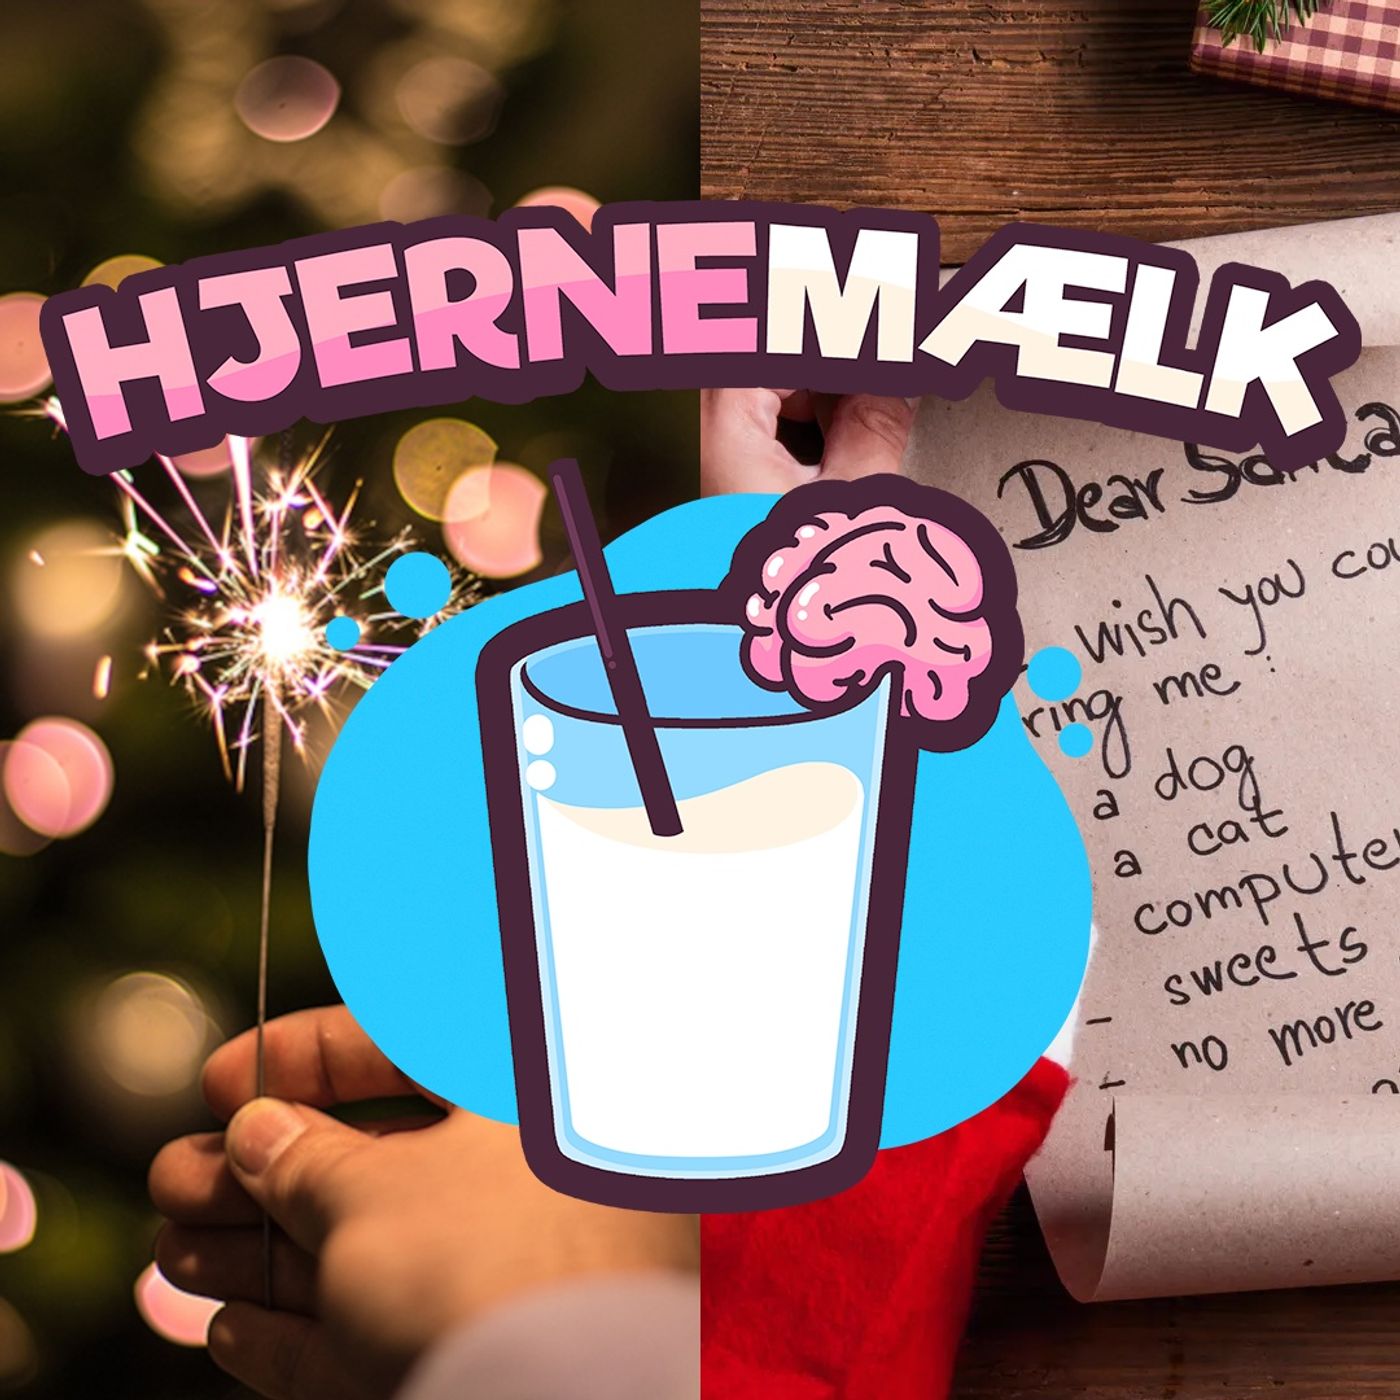 HJERNEMÆLK
Dear Santa
wish you
ring me :
a dog
a cat
computer
sweets
- no more
-